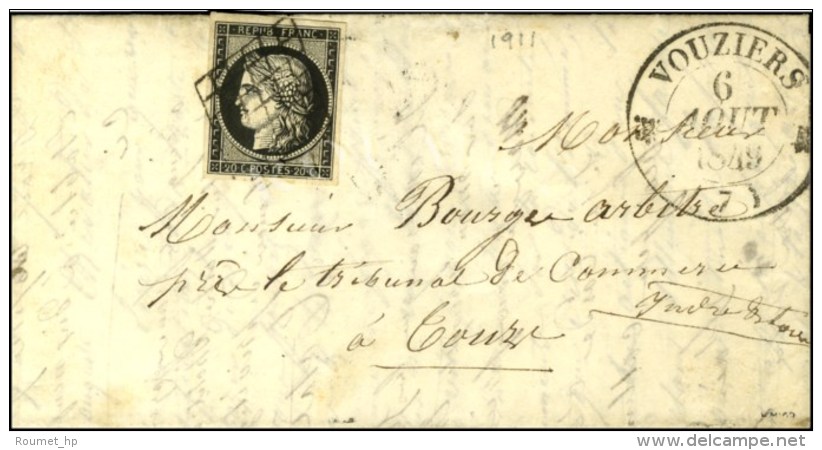 REPUB. FRANC.
20 C POSTES 20 C
1911
VOUZIERS
6
AOUT
1849
(7)
Monsieur
Monsieur Bourgee arbitre
près le tribunal de Commerce
à Tours
Indre & Loire
Roumet_hp
©delcampe.net